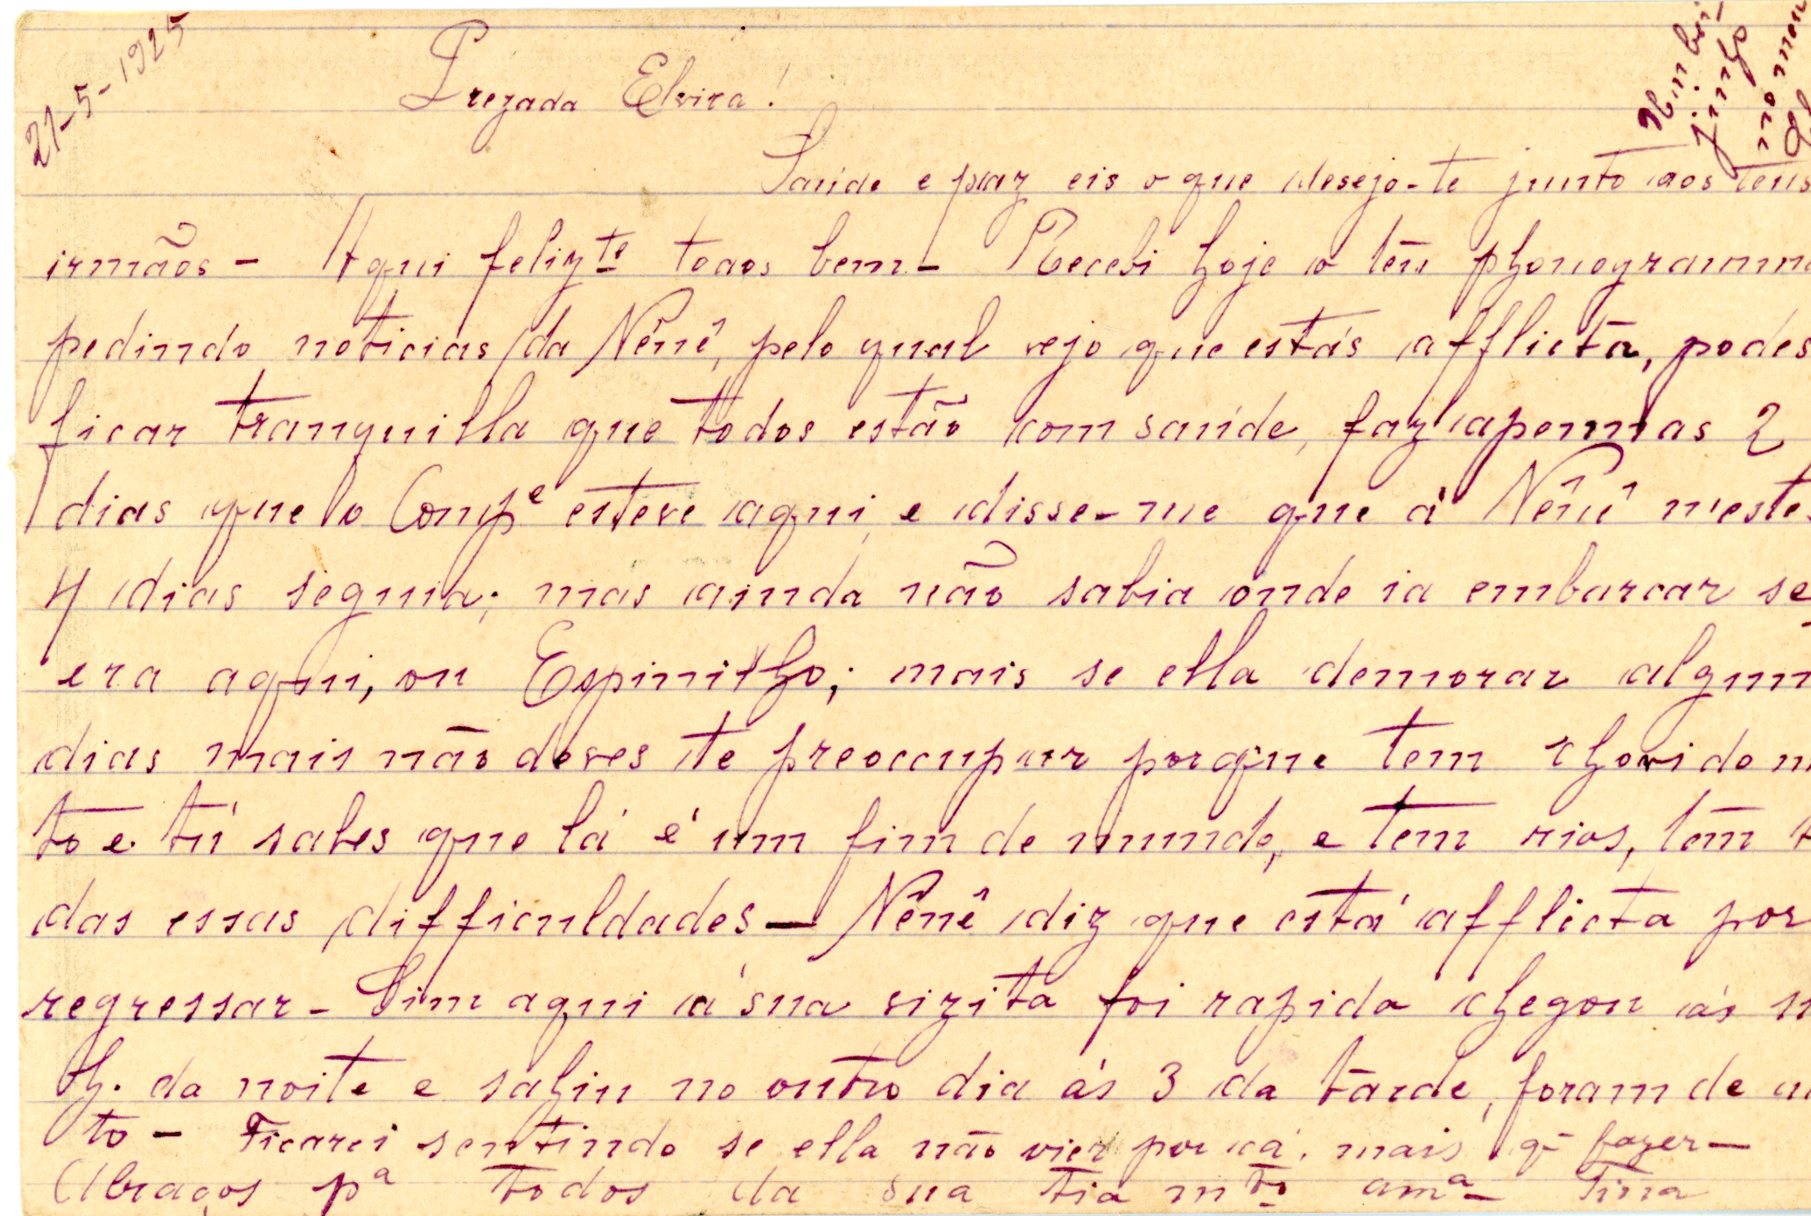 21-5-1925
Prezada Elvira!
Saúde e paz eis o que desejo-te junto aos teus
irmãos - Aqui felizte todos bem - Recebi hoje o teu phonogramma
pedindo noticias da Nênê, pelo qual vejo que estás afflicta, podes
ficar tranquilla que todos estão com saúde, faz apennas 2
dias que o Compe esteve aqui, e disse-me que á Nênê nestes
4 dias seguia; mas ainda não sabia onde ia embarcar se
era aqui, ou Espinilho; mais se ella demorar algun
dias mais não deves te preoccupar porque tem chovido m
to e tú sabes que lá é um fim de mundo, e tem rios, tem t
das essas difficuldades - Nênê diz que está afflicta por
regressar - Sim aqui á sua vizita foi rapida chegou ás
h. da noite e sahiu no outro dia ás 3 da tarde, foram de au
to - Ficarei sentindo se ella não vier por cá, mais q- fazer -
Abraços pa todos da sua tia mto ama - Tina